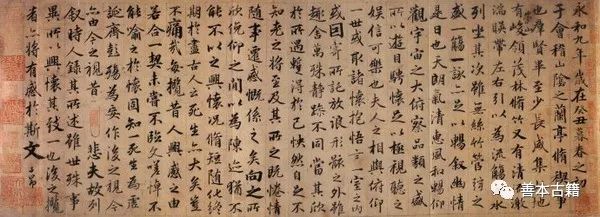 永和九年歲在癸丑暮春之初會
于會稽山陰之蘭亭脩禊事
也群賢畢至少長咸集此地
有峻領茂林脩竹又有清流激
湍暎帶左右引以為流觴曲水
列坐其次雖無絲竹管弦之
盛一觴一詠亦足以暢敘幽情
是日也天朗氣清惠風和暢仰
觀宇宙之大俯察品類之盛
所以遊目騁懷足以極視聽之
娛信可樂也夫人之相與俯仰
一世或取諸懷抱悟言一室之內
或因寄所託放浪形骸之外雖
趣舍萬殊靜躁不同當其欣
於所遇暫得於己快然自足不
知老之將至及其所之既惓情
隨事遷感慨係之矣向之所
欣俛仰之間以為陳迹猶不
能不以之興懷況脩短隨化終
期於盡古人云死生亦大矣豈
不痛哉每攬昔人興感之由
若合一契未嘗不臨文嗟悼不
能喻之於懷固知一死生為虛
誕齊彭殤為妄作後之視今
亦由今之視昔 悲夫故列
敘時人錄其所述雖世殊事
異所以興懷其致一也後之攬
者亦將有感於斯文
子昂
善本古籍